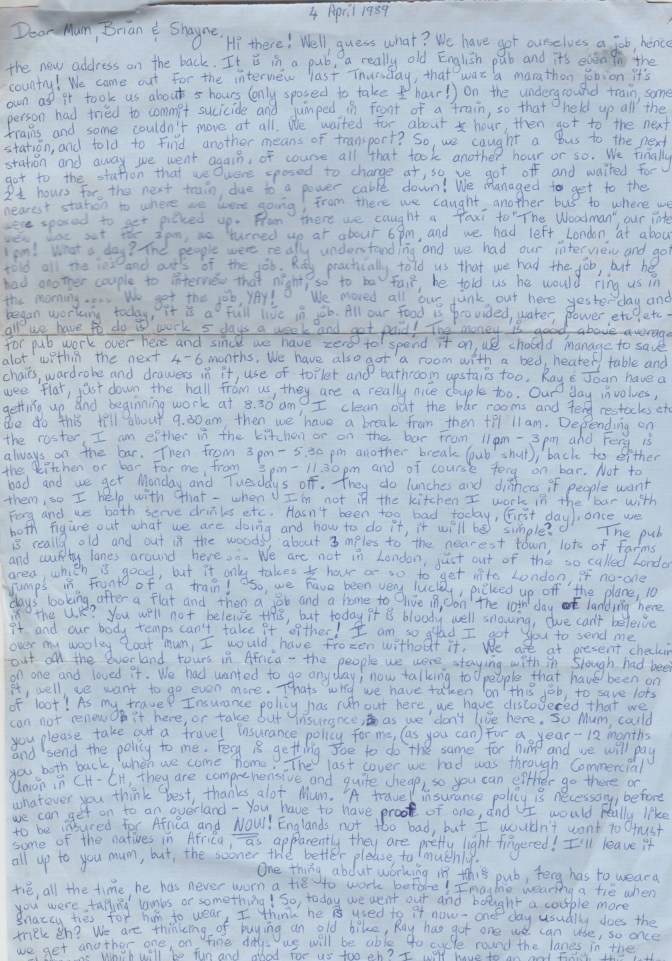 4 April 1989
Dear Mum, Brian & Shayne,
Hi there! Well, guess what? We have got ourselves a job, hence
the new address on the back. It is in a pub, a really old English pub and it's even in the
country! We came out for the interview last Thursday, that was a marathon job on it's
own as it took us about 5 hours (only sposed to take ½ hour!) On the underground train, some
person had tried to commit suicide and jumped in front of a train, so that held up all the
trains and some couldn't move at all. We waited for about ½ hour, then got to the next
station, and told to find another means of transport? So, we caught a bus to the next
station and away we went again, of course all that took another hour or so. We finally
got to the station that we were sposed to change at, so we got off and waited for
2½ hours for the next train, due to a power cable down! We managed to get to the
nearest station to where we were going, from there we caught another bus to where we
were sposed to get picked up. From there we caught a Taxi to "The Woodman", our inte
was set for 3pm, we turned up at about 6pm, and we had left London at about
1pm! What a day? The people were really understanding and we had our interview and got
told all the ins and outs of the job. Ray practically told us that we had the job, but he
had another couple to interview that night, so to be fair he told us he would ring us in
the morning.... We got the job, YAY! We moved all our junk out here yesterday and
began working today, it is a full live in job. All our food is provided, water, power etc, etc -
all we have to do is work 5 days a week and get paid! The money is good, above average
for pub work over here and since we have zero to spend it on, we should manage to save
alot within the next 4-6 months. We have also got a room with a bed, heater, table and
chairs, wardrobe and drawers in it, use of toilet and bathroom upstairs too. Ray & Joan have a
wee flat, just down the hall from us, they are a really nice couple too. Our day involves,
getting up and beginning work at 8.30am, I clean out the bar rooms and Ferg restocks etc
we do this till about 9.30am, then we have a break from then till 11am. Depending on
the roster, I am either in the kitchen or on the bar from 11pm - 3pm and Ferg is
always on the bar. Then from 3pm - 5.30pm another break (pub shut), back to either
the kitchen or bar for me, from 3pm - 11.30pm and of course Ferg on bar. Not to
bad and we get Monday and Tuesdays off. They do lunches and dinners if people want
them, so I help with that - when I'm not in the kitchen I work in the bar with
Ferg and we both serve drinks etc. Hasn't been too bad today, (first day), once we
both figure out what we are doing and how to do it, it will be simple. The pub
is really old and out in the woods, about 3 miles to the nearest town, lots of farms
and country lanes around here... We are not in London, just out of the so called London
area, which is good, but it only takes ½ hour or so to get into London, if no-one
jumps in front of a train! So, we have been very lucky, picked up off the plane, 10
days looking after a flat and then a job and a home to live in, on the 10th day of landing here
in the U.K? You will not beleive this, but today it is bloody well snowing, we can't beleive
it and our body temps can't take it either! I am so glad I got you to send me
over my wooley coat Mum, I would have frozen without it. We are at present checkin
out all the overland tours in Africa - the people we were staying with in Slough had been
on one and loved it. We had wanted to go anyday, now talking to people that have been on
it, well, we want to go even more. Thats why we have taken on this job, to save lots
of loot! As my travel Insurance policy has run out here, we have discovered that we
can not renew it here, or take out insurance, as we don't live here. So Mum, could
you please take out a travel Insurance policy for me, (as you can) for a year - 12 months
and send the policy to me. Ferg is getting Joe to do the same for him and we will pay
you both back, when we come home. The last cover we had was through Commercial
Union in CH-CH, they are comprehensive and quite cheap, so you can either go there or
whatever you think best, thanks alot Mum. A travel insurance policy is necessary, before
we can get on to an overland - You have to have proof of one, and I would really like
to be insured for Africa and NOW! Englands not too bad, but I wouldn't want to trust
some of the natives in Africa, as apparently they are pretty light fingered! I'll leave it
all up to you mum, but, the sooner the better please, to muchly.
One thing about working in this pub, Ferg has to wear a
tie, all the time, he has never worn a tie to work before! Imagine wearing a tie when
you were tailing lambs or something! So, today we went out and bought a couple more
snazzy ties for him to wear, I think he is used to it now - one day usually does the
trick eh? We are thinking of buying an old bike, Ray has got one we can use, so once
we get another one, on fine days we will be able to cycle round the lanes in the
Which will be fun and good for us too eh? I will have to go and finish this